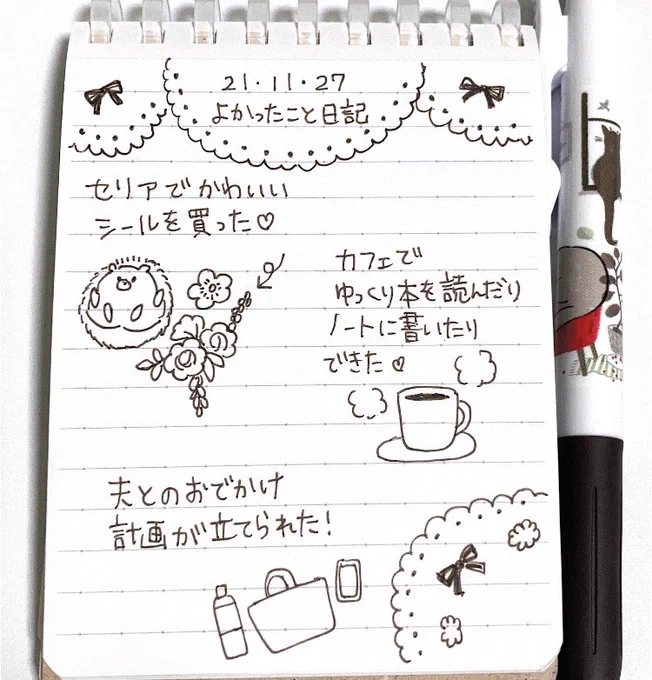 21・11・27
よかったこと日記
セリアでかわいい
シールを買った♡
カフェで
ゆっくり本を読んだり
ノートに書いたり
できた♡
夫とのおでかけ
計画が立てられた!